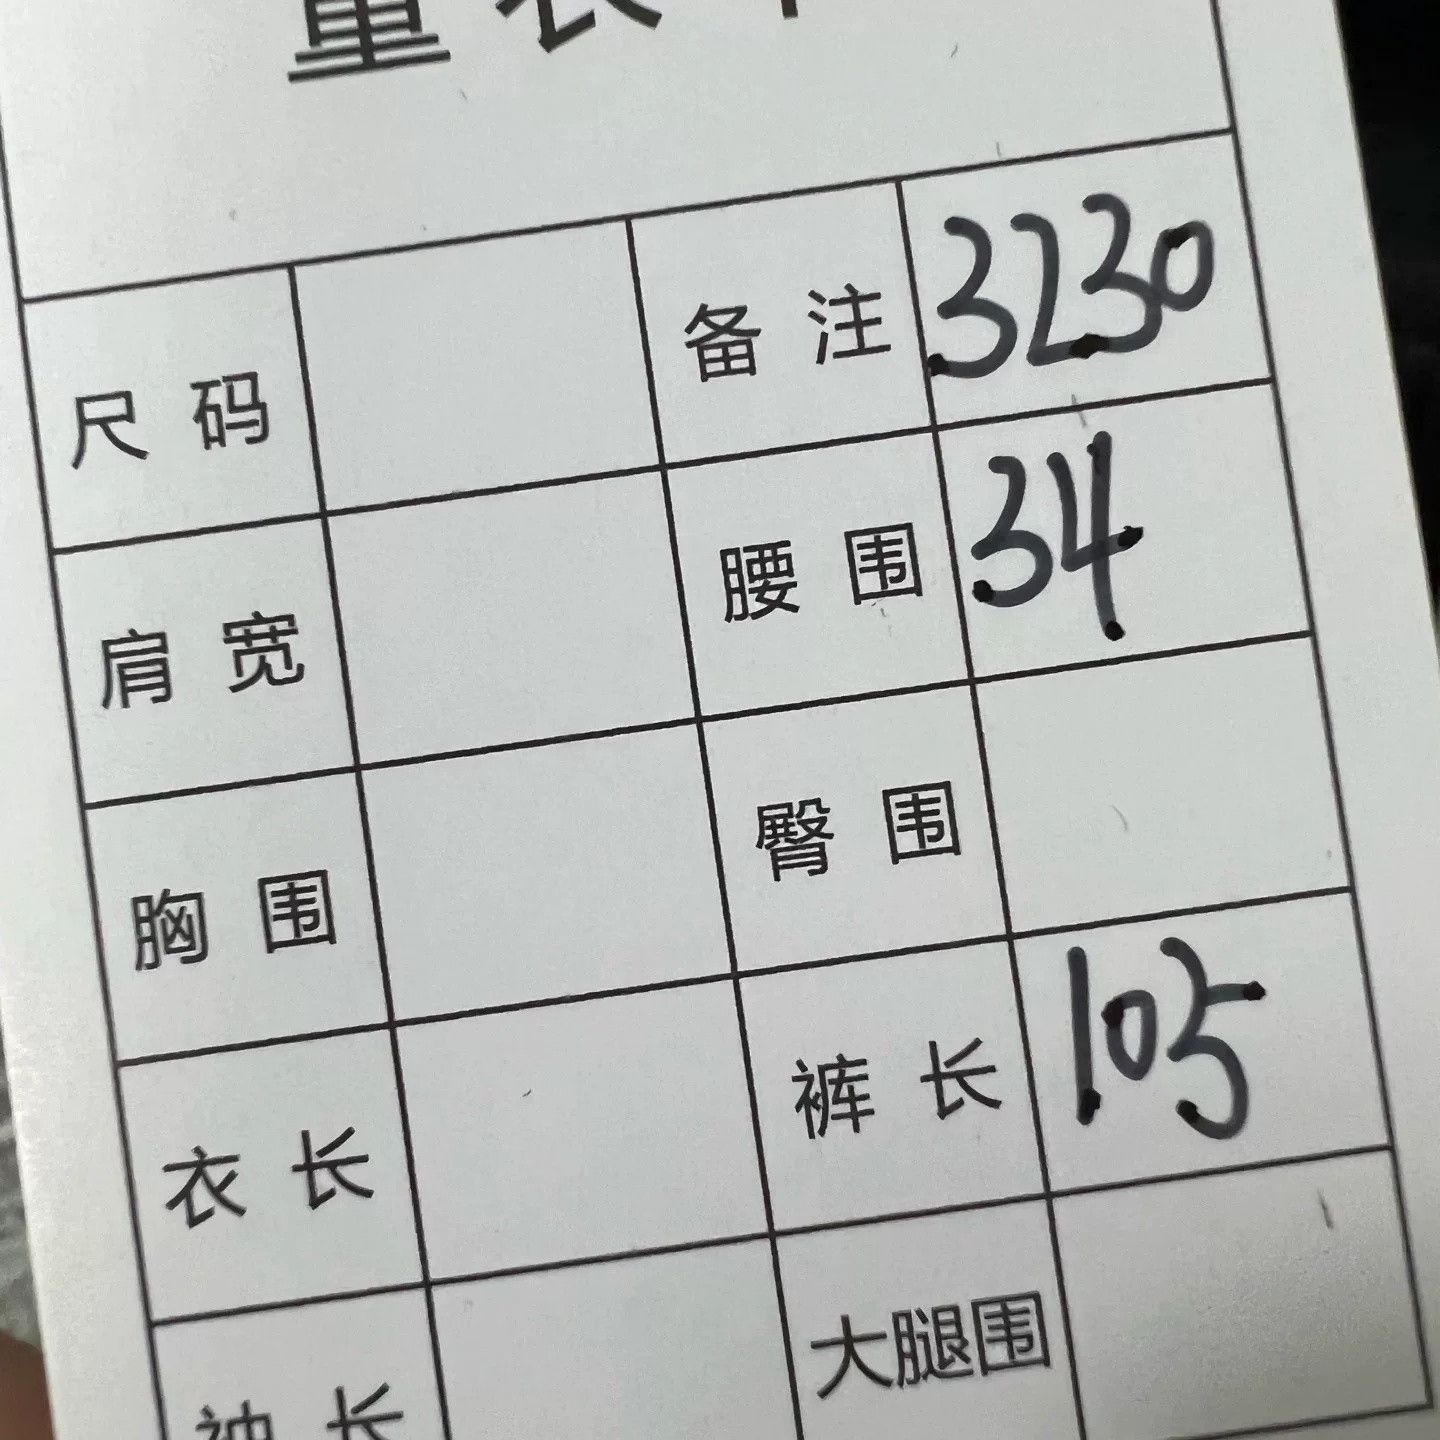 量衣
尺码 备注 3230
肩宽 腰围 34
胸围 臀围
衣长 裤长 105
袖长 大腿围